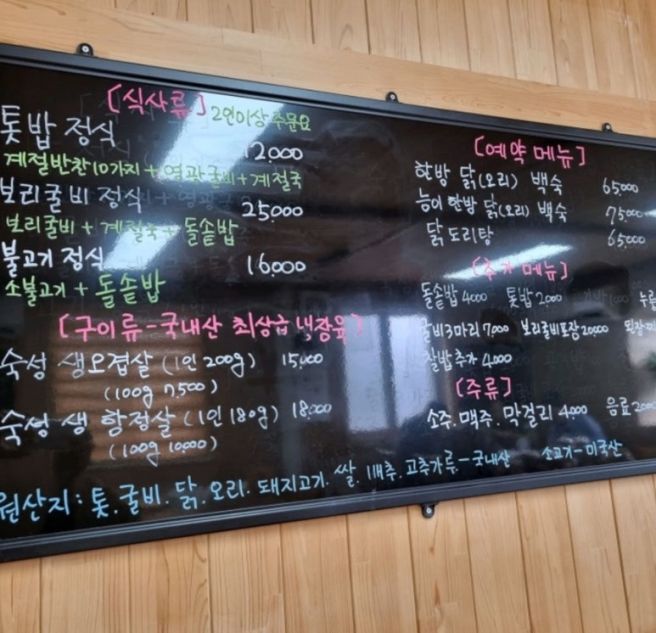 [식사류] 2인이상 주문요
톳밥 정식 12,000
계절반찬 10가지 + 영광굴비 + 계절국
보리굴비 정식 25,000
보리굴비 + 계절국 + 돌솥밥
불고기 정식 16,000
소불고기 + 돌솥밥
[구이류 - 국내산 최상급 냉장육]
숙성 생오겹살 (1인 200g) 15,000
(100g 7,500)
숙성 생 항정살 (1인 180g) 18,000
(100g 10,000)
[예약 메뉴]
한방 닭(오리) 백숙 65,000
능이 한방 닭(오리) 백숙 75,000
닭도리탕 65,000
[추가 메뉴]
돌솥밥 4,000 톳밥 2,000
굴비 3마리 7,000 보리굴비포장 20,000
찰밥 추가 4,000
[주류]
소주. 맥주. 막걸리 4,000 음료 2,000
원산지 : 톳. 굴비. 닭. 오리. 돼지고기. 쌀. 배추. 고추가루 - 국내산 소고기 - 미국산